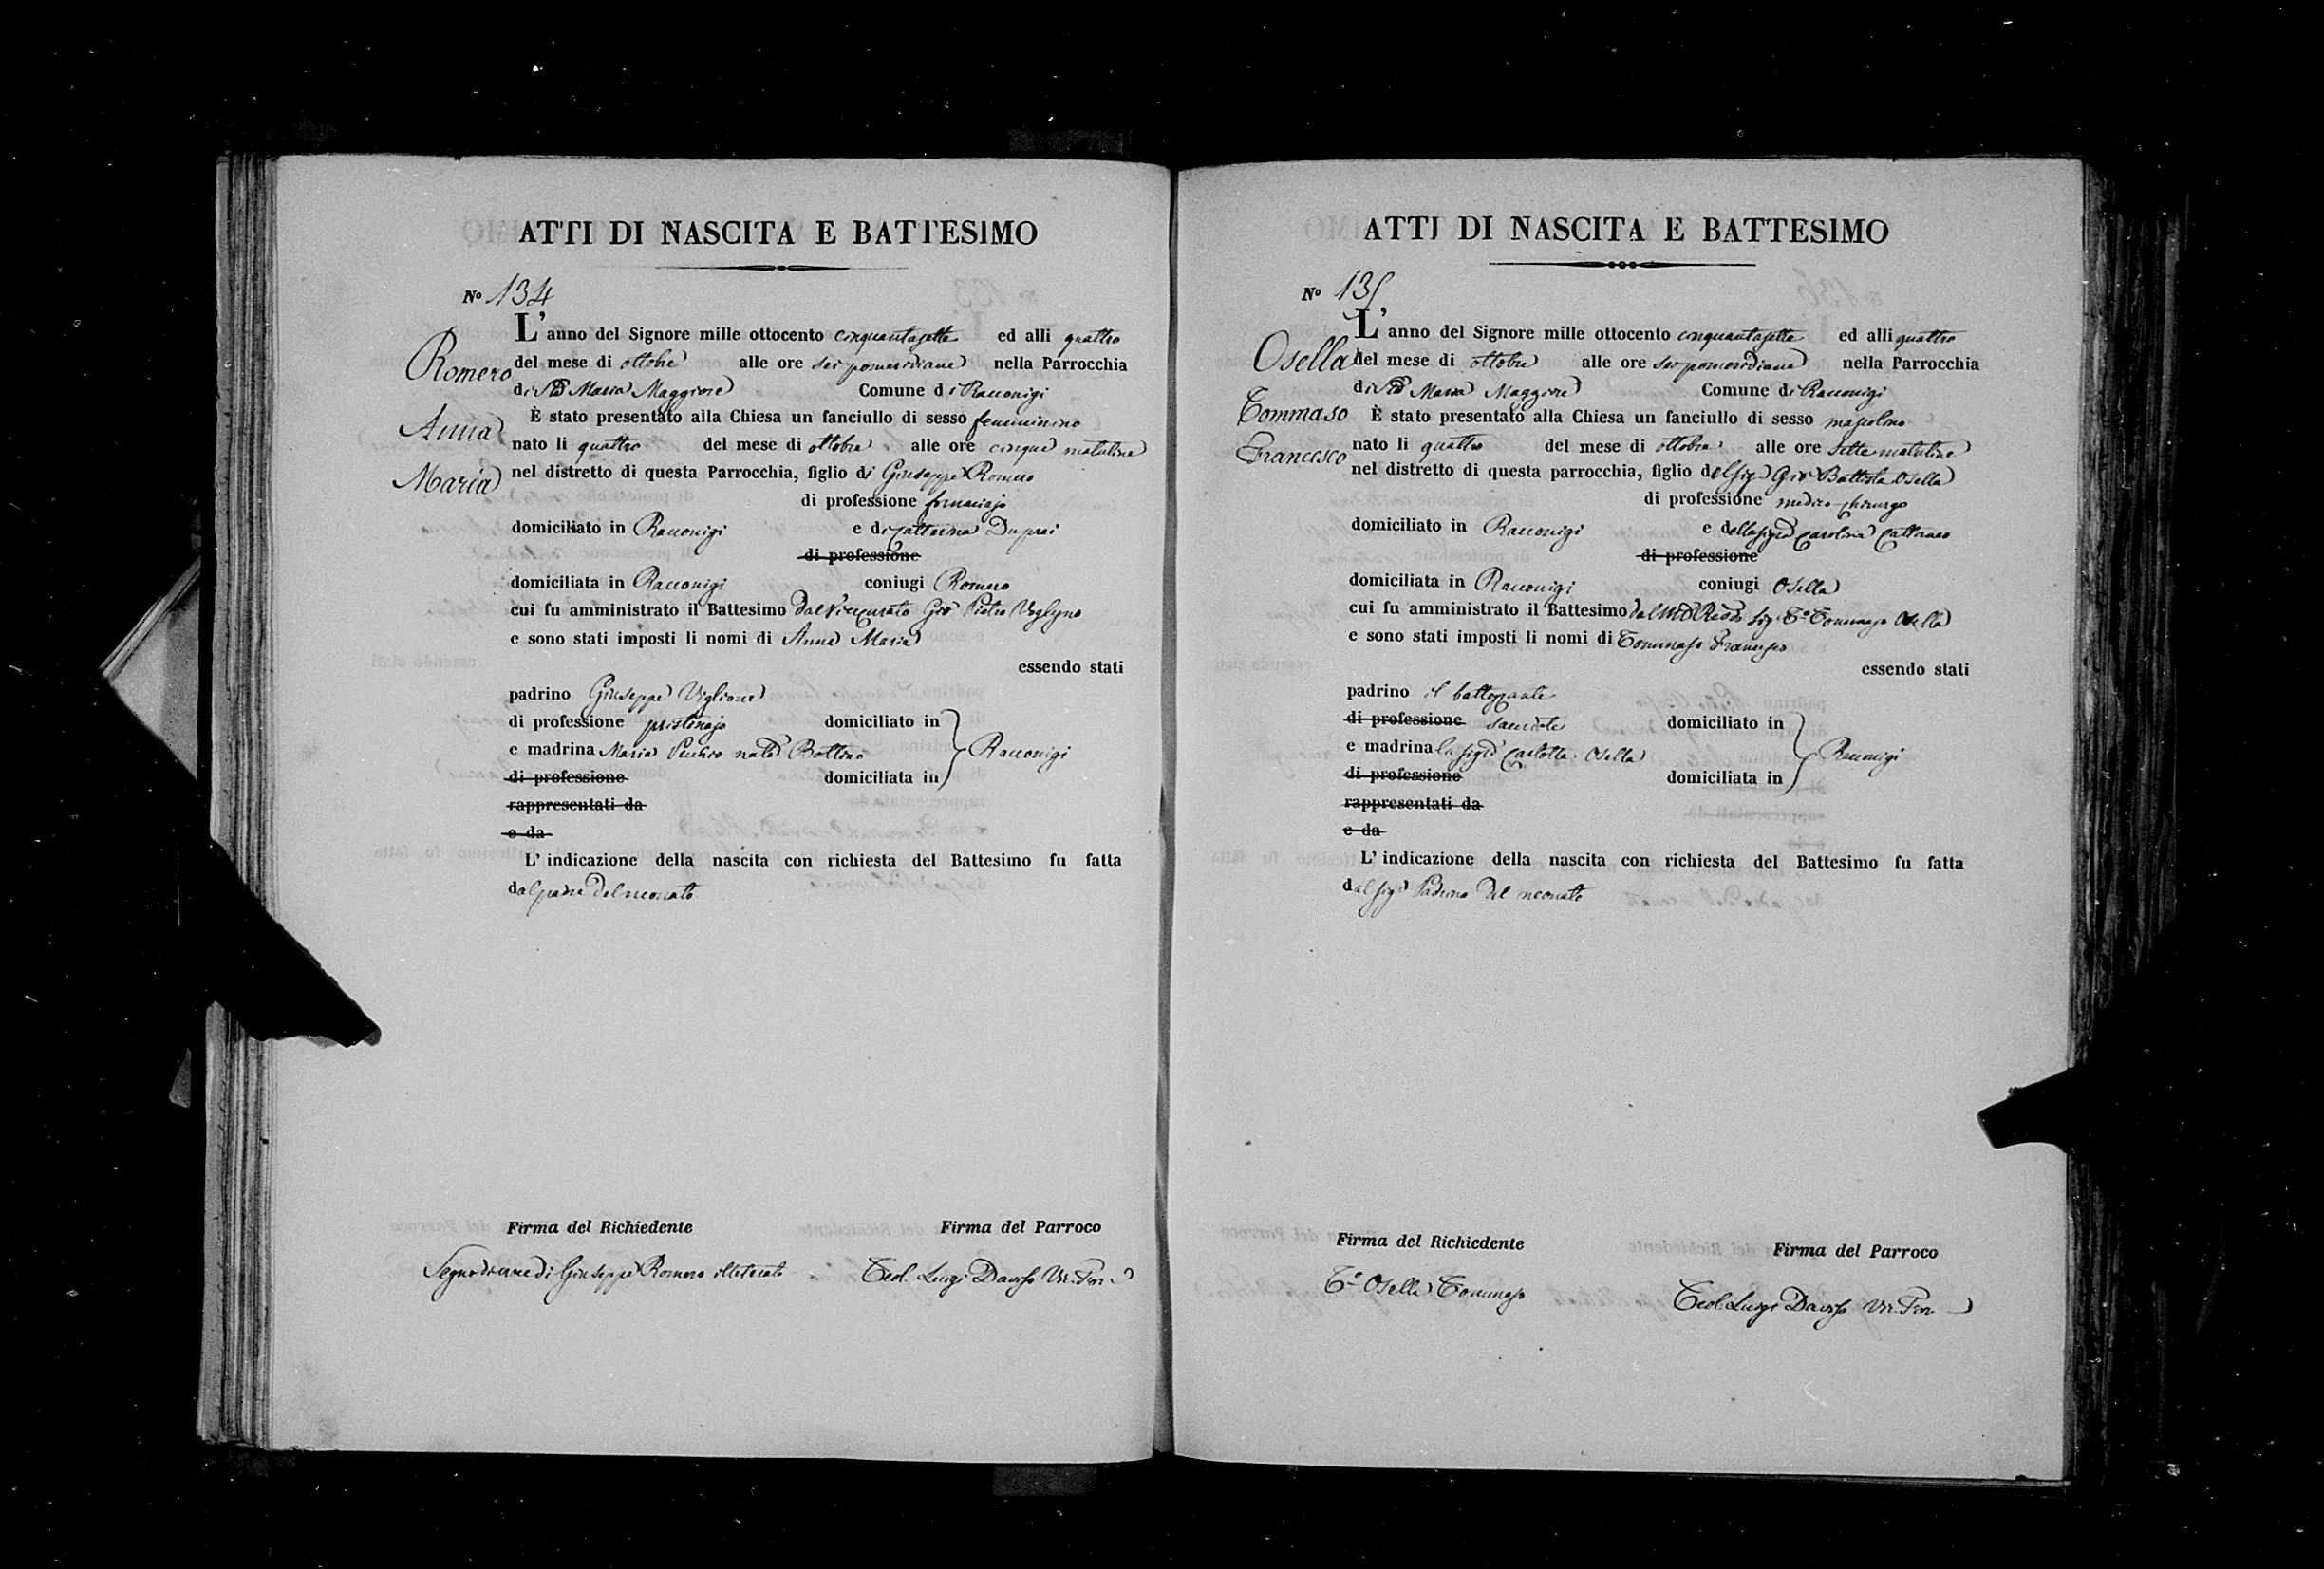 ATTI DI NASCITA E BATTESIMO
No 134
Romero
Anna
Maria
L'anno del Signore mille ottocento cinquantasette ed alli quattro
del mese di ottobre alle ore sei pomeridiane nella Parrocchia
di Sta Maria Maggiore Comune di Racconigi
È stato presentato alla Chiesa un fanciullo di sesso femminino
nato li quattro del mese di ottobre alle ore cinque matutine
nel distretto di questa Parrocchia, figlio di Giuseppe Romero
di professione fornaciajo
domiciliato in Racconigi e di Catterina Duprai
di professione
domiciliata in Racconigi coniugi Romero
cui fu amministrato il Battesimo dal Vicecurato Gio Pietro
e sono stati imposti li nomi di Anna Maria
essendo stati
padrino Giuseppe Viglione
di professione pristinajo domiciliato in
e madrina Maria nata Bottino Racconigi
di professione domiciliata in
rappresentati da
e da
L' indicazione della nascita con richiesta del Battesimo fu fatta
dal padre del neonato
Firma del Richiedente Firma del Parroco
Segno di croce di Giuseppe Romero illetterato Teol. Luigi Daviso Vic. For.
ATTI DI NASCITA E BATTESIMO
No 135
Osella
Tommaso
Francesco
L'anno del Signore mille ottocento cinquantasette ed alli quattro
del mese di ottobre alle ore sei pomeridiane nella Parrocchia
di Sta Maria Maggiore Comune di Racconigi
È stato presentato alla Chiesa un fanciullo di sesso mascolino
nato li quattro del mese di ottobre alle ore sette matutine
nel distretto di questa parrocchia, figlio del Sigr Gio Battista Osella
di professione medico-chirurgo
domiciliato in Racconigi e della sigra Carolina Cattaneo
di professione
domiciliata in Racconigi coniugi Osella
cui fu amministrato il Battesimo dal sig. To Tommaso Osella
e sono stati imposti li nomi di Tommaso Francesco
essendo stati
padrino il battezzante
di professione sacerdote domiciliato in
e madrina la sigra Carlotta Osella Racconigi
di professione domiciliata in
rappresentati da
e da
L' indicazione della nascita con richiesta del Battesimo fu fatta
dal sigr Padrino del neonato
Firma del Richiedente Firma del Parroco
To Osella Tommaso Teol. Luigi Daviso Vic. For.